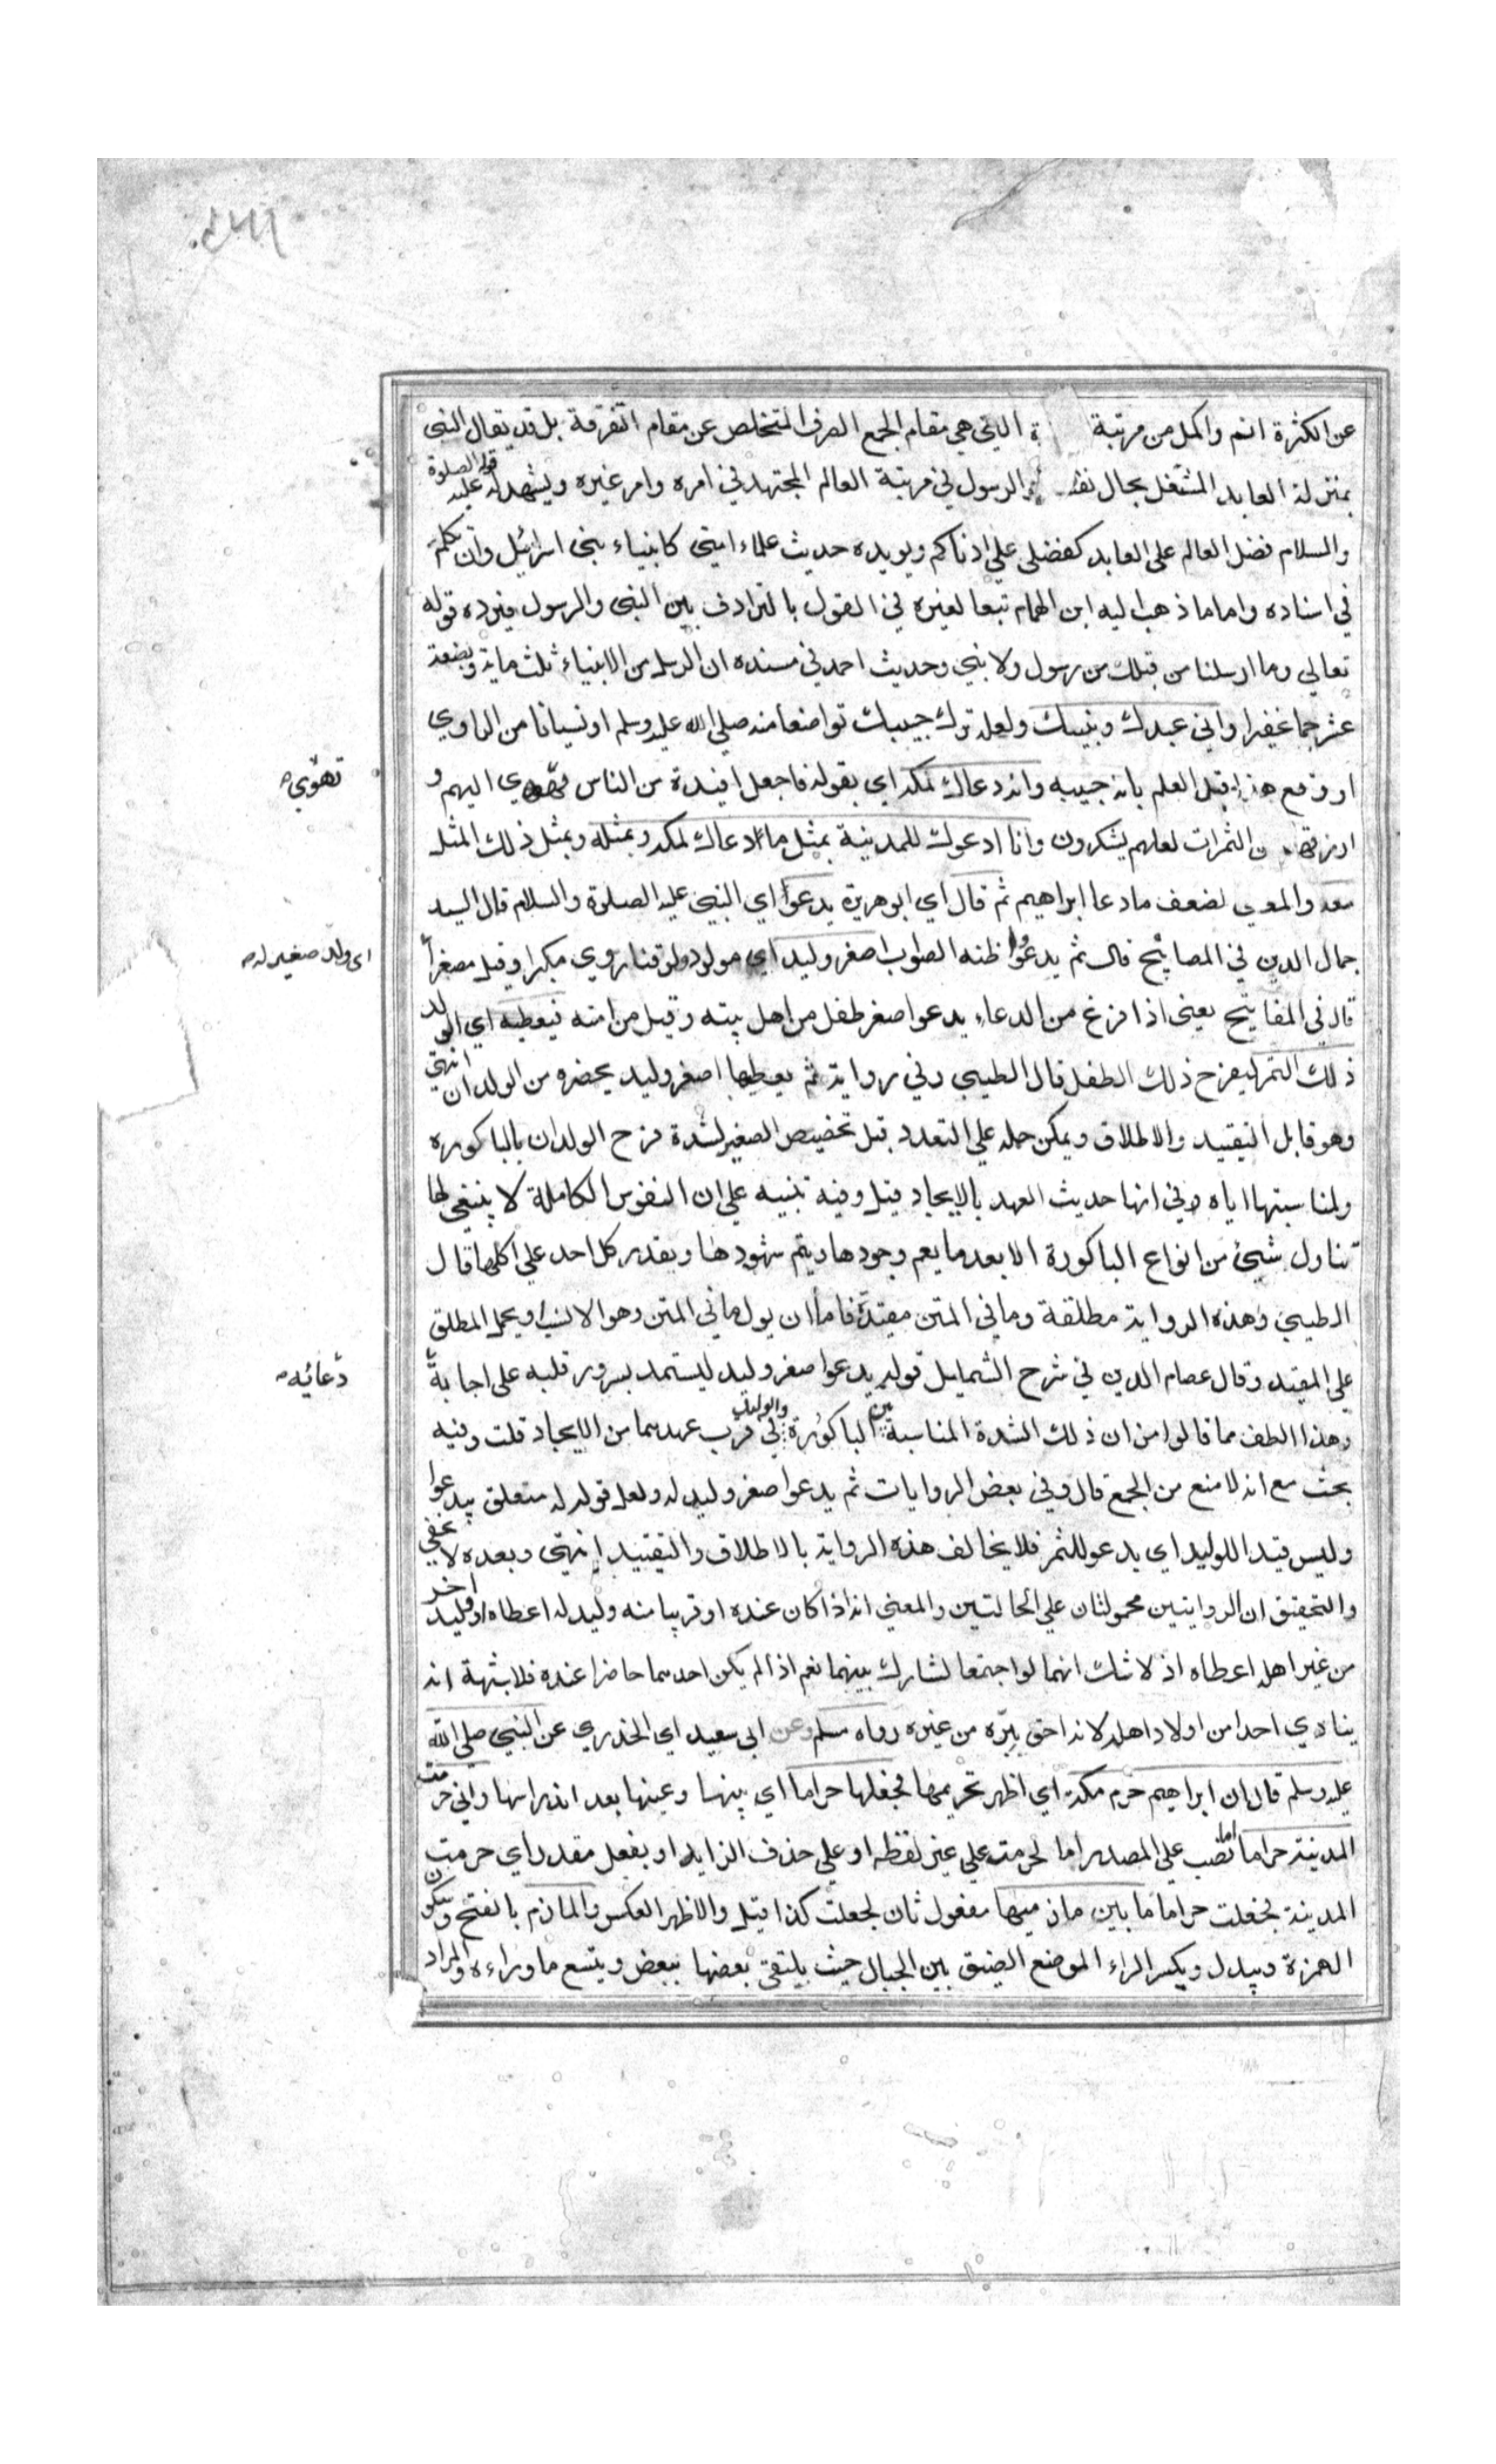 عن الكثرة اتم واكمل من مرتبة التي هي مقام الجمع الصرف المتخلص عن مقام التفرقة بل قد يقال النبي
بمنزلة العابد المشتغل بحال نفسه والرسول في مرتبة العالم المجتهد في امره وامر غيره ويشهد له قوله عليه الصلوة
والسلام فضل العالم على العابد كفضلي على ادناكم ويويده حديث علماء امتي كانبياء بني اسرائيل وان تكلم
في اسناده واما ما ذهب اليه ابن الهمام تبعا لغيره في القول بالترادف بين النبي والرسول فيرده قوله
تعالي وما ارسلنا من قبلك من رسول ولا نبي وحديث احمد في مسنده ان الرسل من الانبياء ثلث ماية وبضعة
عشر جما غفيرا واني عبدك ونبيك ولعله ترك حبيبك تواضعا منه صلي الله عليه وسلم او نسيانا من الراوي
او وقع هذا قبل العلم بانه حبيبه وانه دعاك لمكة اي بقوله فاجعل افئدة من الناس تهوي اليهم و
ارزقهم من الثمرات لعلهم يشكرون وانا ادعوك للمدينة بمثل ما دعاك لمكة وبمثله وبمثل ذلك المثل
معه والمعنى لضعف ما دعا ابراهيم ثم قال اي ابو هريرة يدعوا اي النبي عليه الصلوة والسلام قال السيد
جمال الدين في المصابيح قال ثم يدعوا واظنه الصواب اصغر وليد اي مولود روي مكبرا وقيل مصغرا
قال في المفاتيح يعني اذا فرغ من الدعاء يدعوا اصغر طفل من اهل بيته وقيل من امته فيعطيه اي الولد
ذلك الثمر ليفرح ذلك الطفل قال الطيبي وفي رواية ثم يعطيها اصغر وليد يحضره من الولدان انتهي
وهو قابل التقييد والاطلاق ويمكن حمله علي التعدد قيل تخصيص الصغير لشدة فرح الولدان بالباكوره
ولمناسبتها اياه في انها حديث العهد بالايجاد قيل وفيه تنبيه علي ان النفوس الكاملة لا ينبغي لها
تناول شيئ من انواع الباكورة الا بعد ما يعم وجودها ويتم شهودها ويقدر كل احد علي اكلها قال
الطيبي وهذه الرواية مطلقة وما في المتن مقيدة فاما ان يول ما في المتن وهو الانسب او يحمل المطلق
علي المقيد وقال عصام الدين في شرح الشمايل قوله يدعوا اصغر وليد ليستمد بسرور قلبه على اجابة
وهذا الطف مما قالوا من ان ذلك لشدة المناسبة بين الباكورة والوليد في قرب عهدهما من الايجاد قلت وفيه
بحث مع انه لا منع من الجمع قال وفي بعض الروايات ثم يدعوا اصغر وليد له ولعل قوله له متعلق بيدعوا
وليس قيدا للوليد اي يدعو للثمر فلا يخالف هذه الرواية بالاطلاق والتقييد انتهى وبعده لا يخفي
والتحقيق ان الروايتين محمولتان علي الحالتين والمعني انه اذا كان عنده او قريبا منه وليد له اعطاه او وليد اخر
من غير اهله اعطاه اذ لا شك انهما لو اجتمعا لشارك بينهما نعم اذا لم يكن احدهما حاضرا عنده فلا شبهة انه
ينادي احدا من اولاد اهله لانه احق ببره من غيره رواه مسلم وعن ابي سعيد اي الخدري عن النبي صلى الله
عليه وسلم قال ان ابراهيم حرم مكة اي اظهر تحريمها فجعلها حراما اي بينها وعينها بعد اندراسها واني حرمت
المدينة حراما نصب علي المصدر اما لحرمت علي غير لفظه او علي حذف الزايد او بفعل مقدر اي حرمت
المدينة فجعلت حراما ما بين مازميها مفعول ثان لجعلت كذا قيل والاظهر العكس والمازم بالفتح وسكون
الهمزة ويبدل وبكسر الراء الموضع الضيق بين الجبال حيث يلتقي بعضها ببعض ويتسع ما وراءه والمراد
تهوي
اي ولد صغير له
دعائه